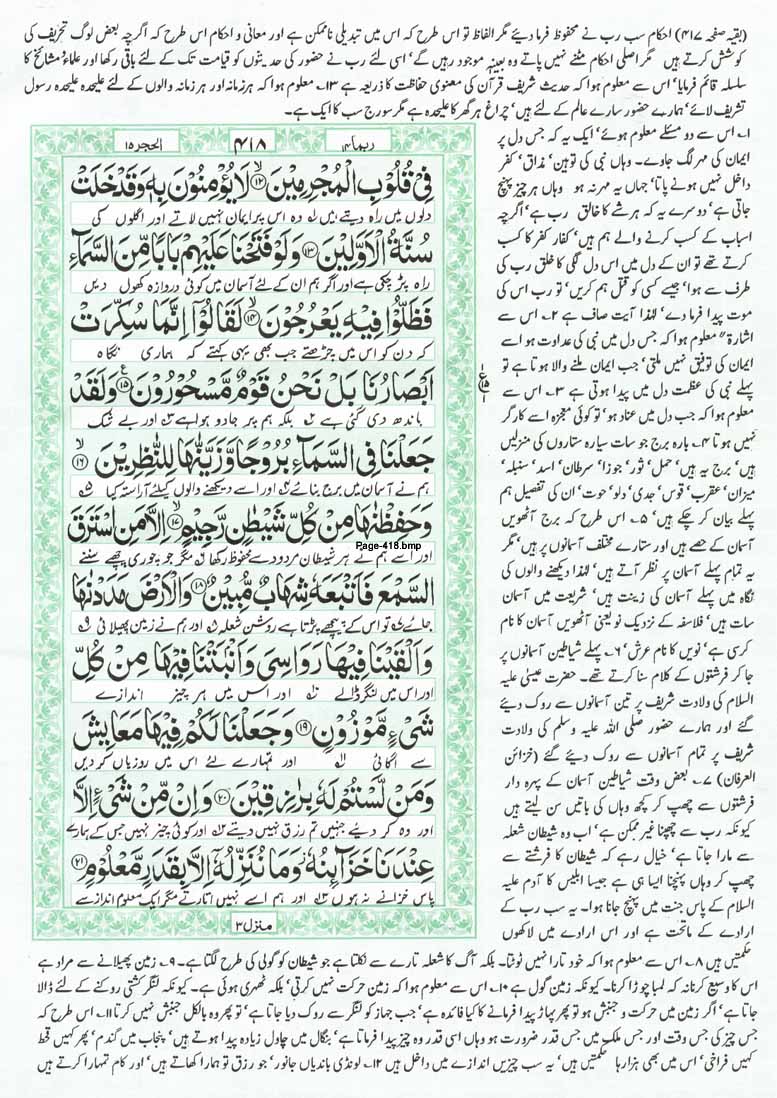 (بقیہ صفحہ ۴۱۷) احکام سب رب نے محفوظ فرما دیئے مگر الفاظ تو اس طرح کہ اس میں تبدیلی ناممکن ہے اور معانی و احکام اس طرح کہ اگرچہ بعض لوگ تحریف کی
کوشش کرتے ہیں مگر اصلی احکام مٹنے نہیں پاتے وہ بعینہٖ موجود رہیں گے‘ اسی لئے رب نے حضور کی حدیثوں کو قیامت تک کے لئے باقی رکھا اور علماء‘ مشائخ کا
سلسلہ قائم فرمایا‘ اس سے معلوم ہوا کہ حدیث شریف قرآن کی معنوی حفاظت کا ذریعہ ہے ۱۳؎ معلوم ہوا کہ ہر زمانہ اور ہر زمانہ والوں کے لئے علیحدہ علیحدہ رسول
تشریف لائے‘ ہمارے حضور سارے عالم کے لئے ہیں‘ چراغ ہر گھر کا علیحدہ ہے مگر سورج سب کا ایک ہے۔
ربما ۱۴
۴۱۸
الحجر ۱۵
فِیْ قُلُوْبِ الْمُجْرِمِیْنَ ۙ۱۲ لَا یُؤْمِنُوْنَ بِهٖ وَقَدْ خَلَتْ
دلوں میں راہ دیتے ہیں ۱؎ وہ اس پر ایمان نہیں لاتے اور اگلوں کی
سُنَّةُ الْاَوَّلِیْنَ ۱۳ وَلَوْ فَتَحْنَا عَلَیْهِمْ بَابًا مِّنَ السَّمَآءِ
راہ پڑ چکی ہے اور اگر ہم ان کے لئے آسمان میں کوئی دروازہ کھول دیں
فَظَلُّوْا فِیْهِ یَعْرُجُوْنَ ۙ۱۴ لَقَالُوْۤا اِنَّمَا سُكِّرَتْ
کہ دن کو اس میں چڑھتے جب بھی یہی کہتے کہ ہماری نگاہ
اَبْصَارُنَا بَلْ نَحْنُ قَوْمٌ مَّسْحُوْرُوْنَ ۱۵ وَلَقَدْ
باندھ دی گئی ہے بلکہ ہم پر جادو ہوا ہے ۳؎ اور بے شک
جَعَلْنَا فِی السَّمَآءِ بُرُوْجًا وَّزَیَّنّٰهَا لِلنّٰظِرِیْنَ ۙ۱۶
ہم نے آسمان میں برج بنائے ۴؎ اور اسے دیکھنے والوں کیلئے آراستہ کیا ۵؎
وَحَفِظْنٰهَا مِنْ كُلِّ شَیْطٰنٍ رَّجِیْمٍ ۙ۱۷ اِلَّا مَنِ اسْتَرَقَ
Page-418.bmp
اور اسے ہم نے ہر شیطان مردود سے محفوظ رکھا ۶؎ مگر جو چوری چھپے سننے
السَّمْعَ فَاَتْبَعَهٗ شِهَابٌ مُّبِیْنٌ ۱۸ وَالْاَرْضَ مَدَدْنٰهَا
جائے ۷؎ تو اس کے پیچھے پڑتا ہے روشن شعلہ ۸؎ اور ہم نے زمین پھیلائی ۹؎
وَاَلْقَیْنَا فِیْهَا رَوَاسِیَ وَاَنْۢبَتْنَا فِیْهَا مِنْ كُلِّ
اور اس میں لنگر ڈالے ۱۰؎ اور اس میں ہر چیز اندازے
شَیْءٍ مَّوْزُوْنٍ ۱۹ وَجَعَلْنَا لَكُمْ فِیْهَا مَعَایِشَ
سے اگائی ۱۱؎ اور تمہارے لئے اس میں روزیاں کر دیں
وَمَنْ لَّسْتُمْ لَهٗ بِرٰزِقِیْنَ ۲۰ وَاِنْ مِّنْ شَیْءٍ اِلَّا
اور وہ کر دیئے جنہیں تم رزق نہیں دیتے ۱۲؎ اور کوئی چیز نہیں جس کے ہمارے
عِنْدَنَا خَزَآئِنُهٗ وَمَا نُنَزِّلُهٗۤ اِلَّا بِقَدَرٍ مَّعْلُوْمٍ ۲۱
پاس خزانے نہ ہوں اور ہم اسے نہیں اتارتے مگر ایک معلوم اندازے سے
منزل ۳
۱؎ اس سے دو مسئلے معلوم ہوئے‘ ایک یہ کہ جس دل پر
ایمان کی مہر لگ جاوے۔ وہاں نبی کی توہین‘ مذاق‘ کفر
داخل نہیں ہونے پاتا‘ جہاں یہ مہر نہ ہو وہاں ہر چیز پہنچ
جاتی ہے‘ دوسرے یہ کہ ہر شے کا خالق رب ہے‘ اگرچہ
اسباب کے کسب کرنے والے ہم ہیں‘ کفار کفر کا کسب
کرتے تھے تو ان کے دل میں اس دل لگی کا خلق رب کی
طرف سے ہوا‘ جیسے کسی کو قتل ہم کریں‘ تو رب اس کی
موت پیدا فرما دے‘ لہٰذا آیت صاف ہے ۲؎ اس سے
اشارۃً معلوم ہوا کہ جس دل میں نبی کی عداوت ہو اسے
ایمان کی توفیق نہیں ملتی‘ جب ایمان ملنے والا ہوتا ہے تو
پہلے نبی کی عظمت دل میں پیدا ہوتی ہے ۳؎ اس سے
معلوم ہوا کہ جب دل میں عناد ہو‘ تو کوئی معجزہ اسے کارگر
نہیں ہوتا ۴؎ بارہ برج جو سات سیارہ ستاروں کی منزلیں
ہیں‘ برج یہ ہیں‘ حمل‘ ثور‘ جوزا‘ سرطان‘ اسد‘ سنبلہ‘
میزان‘ عقرب‘ قوس‘ جدی‘ دلو‘ حوت‘ ان کی تفصیل ہم
پہلے بیان کر چکے ہیں‘ ۵؎ اس طرح کہ برج آٹھویں
آسمان کے حصے ہیں اور ستارے مختلف آسمانوں پر ہیں‘ مگر
یہ تمام پہلے آسمان پر نظر آتے ہیں‘ لہٰذا دیکھنے والوں کی
نگاہ میں پہلے آسمان کی زینت ہیں‘ شریعت میں آسمان
سات ہیں‘ فلاسفہ کے نزدیک نو یعنی آٹھویں آسمان کا نام
کرسی ہے‘ نویں کا نام عرش‘ ۶؎ پہلے شیاطین آسمانوں پر
جا کر فرشتوں کے کلام سنا کرتے تھے۔ حضرت عیسیٰ علیہ
السلام کی ولادت شریف پر تین آسمانوں سے روک دیئے
گئے اور ہمارے حضور صلی اللہ علیہ وسلم کی ولادت
شریف پر تمام آسمانوں سے روک دیئے گئے (خزائن
العرفان) ۷؎ بعض وقت شیاطین آسمان کے پہرہ دار
فرشتوں سے چھپ کر کچھ وہاں کی باتیں سن لیتے ہیں
کیونکہ رب سے چھپنا غیر ممکن ہے‘ اب وہ شیطان شعلہ
سے مارا جاتا ہے‘ خیال رہے کہ شیطان کا فرشتے سے
چھپ کر وہاں پہنچنا ایسا ہی ہے جیسا ابلیس کا آدم علیہ
السلام کے پاس جنت میں پہنچ جانا ہوا۔ یہ سب رب کے
ارادے کے ماتحت ہے اور اس ارادے میں لاکھوں
حکمتیں ہیں ۸؎ اس سے معلوم ہوا کہ خود تارا نہیں ٹوٹتا۔ بلکہ آگ کا شعلہ تارے سے نکلتا ہے جو شیطان کو گولی کی طرح لگتا ہے۔ ۹؎ زمین پھیلانے سے مراد ہے
اس کا وسیع کرنا نہ کہ لمبا چوڑا کرنا۔ کیونکہ زمین گول ہے ۱۰؎ اس سے معلوم ہوا کہ زمین حرکت نہیں کرتی‘ بلکہ ٹھہری ہوئی ہے۔ کیونکہ لنگر کشتی روکنے کے لئے ڈالا
جاتا ہے‘ اگر زمین میں حرکت و جنبش ہو تو پھر پہاڑ پیدا فرمانے کا کیا فائدہ ہے‘ جب جہاز کو لنگر سے روک دیا جاتا ہے‘ تو پھر وہ بالکل جنبش نہیں کرتا ۱۱؎ اس طرح کہ
جس چیز کی جس وقت اور جس ملک میں جس قدر ضرورت ہو وہاں اسی قدر وہ چیز پیدا فرماتا ہے‘ بنگال میں چاول زیادہ پیدا ہوتے ہیں‘ پنجاب میں گندم‘ پھر کہیں قحط
کہیں فراخی‘ اس میں بھی ہزارہا حکمتیں ہیں‘ یہ سب چیزیں اندازے میں داخل ہیں ۱۲؎ لونڈی باندیاں جانور‘ جو رزق تو ہمارا کھاتے ہیں‘ اور کام تمہارا کرتے ہیں